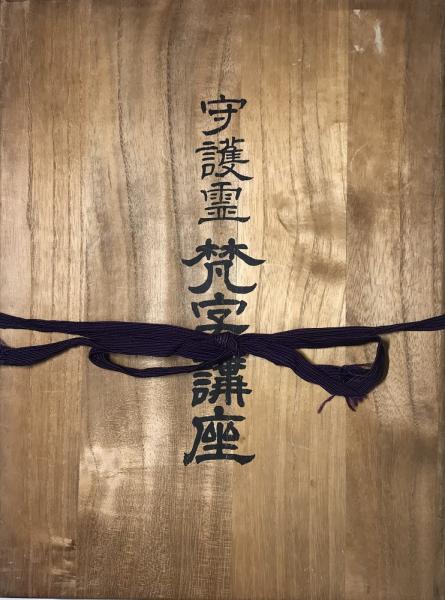 守護霊梵字講座